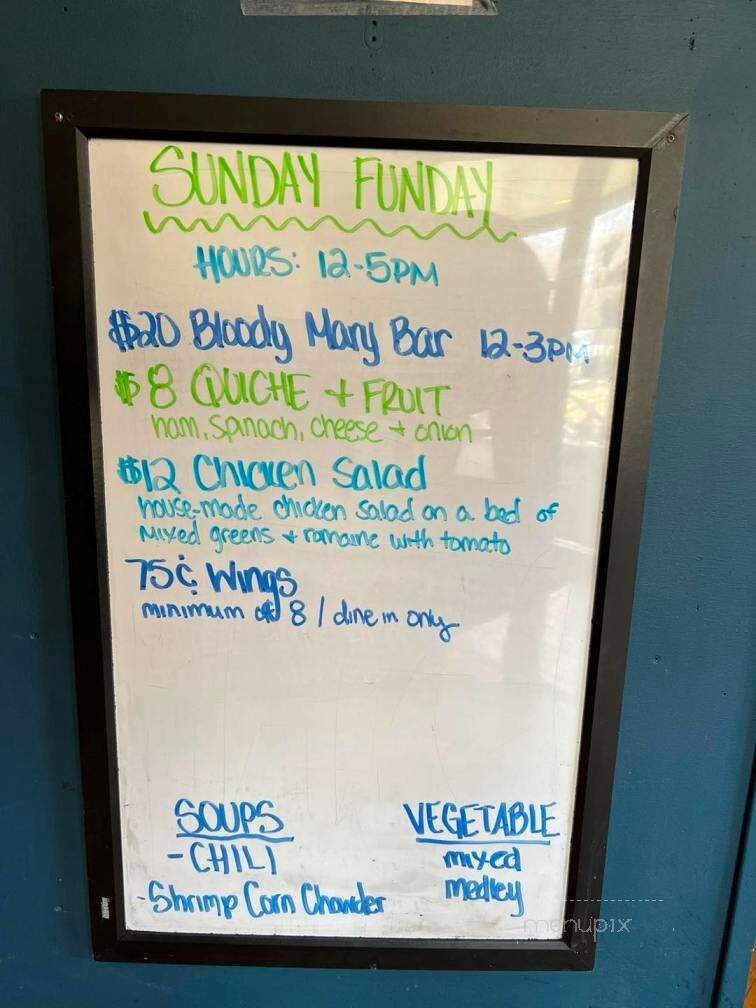 SUNDAY FUNDAY
HOURS: 12-5PM
$20 Bloody Mary Bar 12-3PM
$8 QUICHE + FRUIT
ham, spinach, cheese + onion
$12 Chicken Salad
house-made chicken salad on a bed of
mixed greens + romaine with tomato
75¢ Wings
minimum of 8 / dine in only
SOUPS
- CHILI
- Shrimp Corn Chowder
VEGETABLE
mixed
medley
menupix